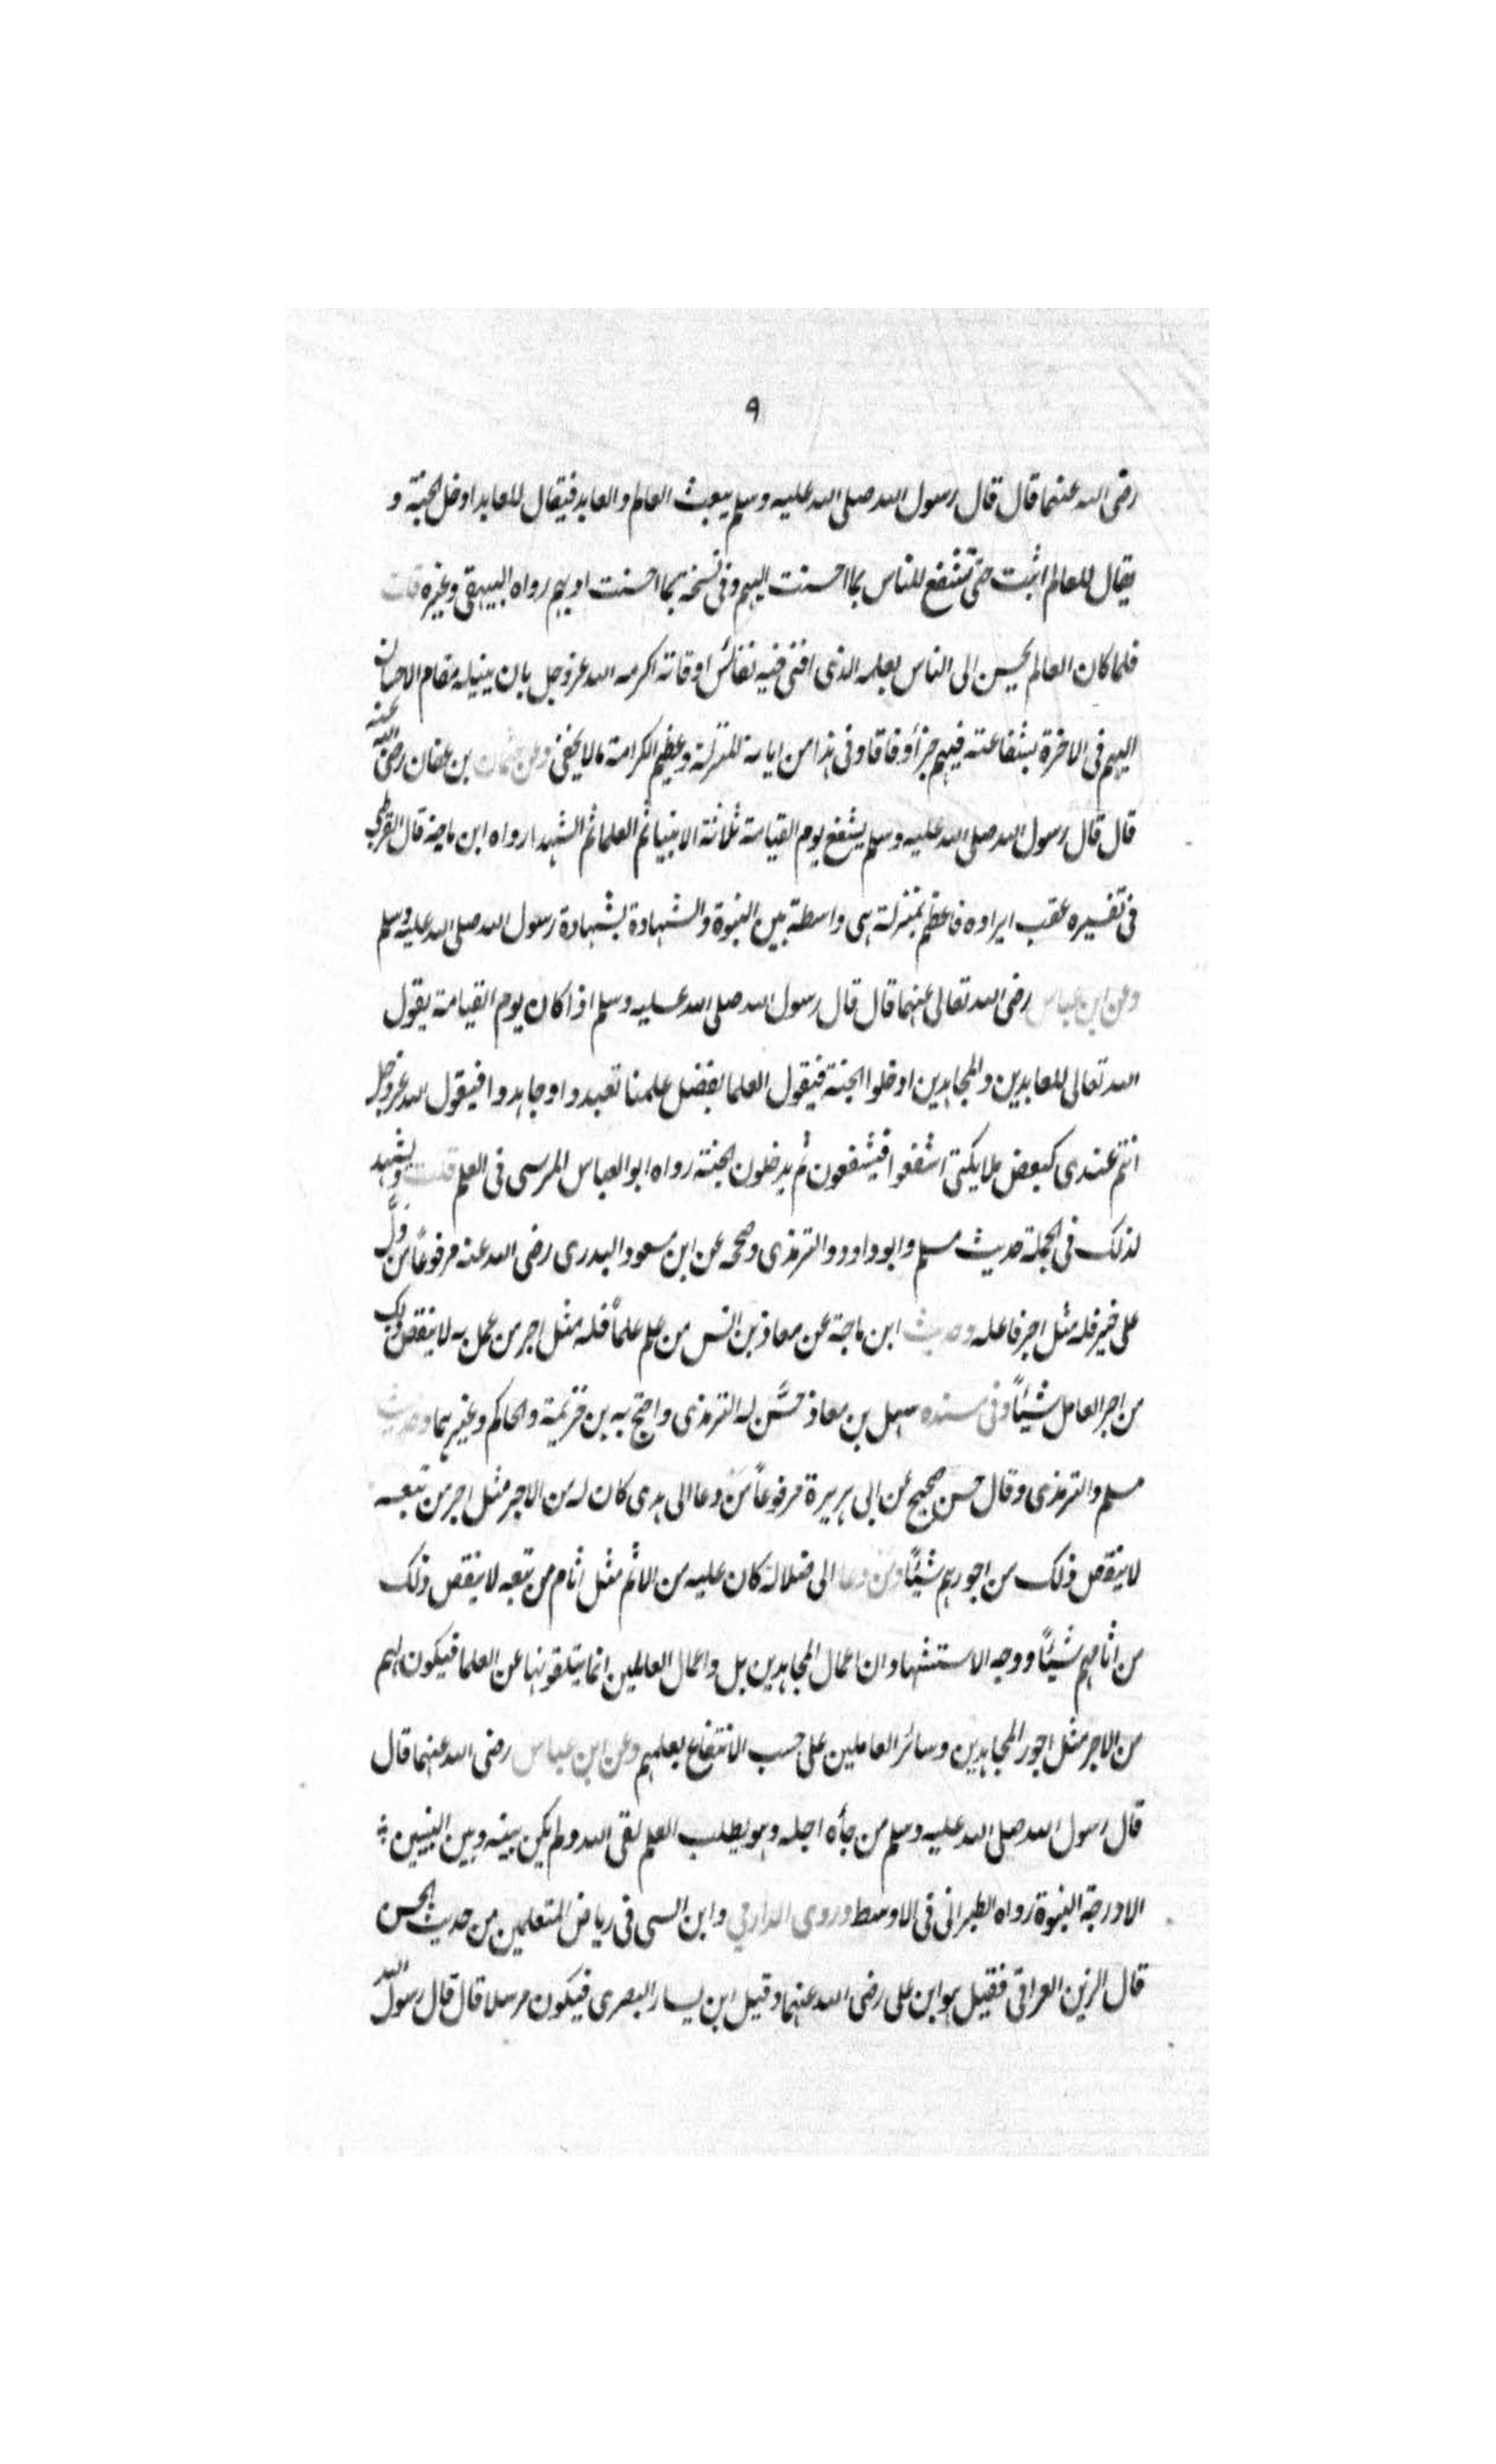 ٩
رضى الله عنهما قال قال رسول الله صلى الله عليه وسلم يبعث العالم والعابد فيقال للعابد ادخل الجنة و
يقال للعالم اثبت حتى تشفع للناس بما احسنت اليهم وفى نسخة بما احسنت ادبهم رواه البيهقى وغيره قلت
فلما كان العالم يحسن الى الناس بعلمه الذى افنى فيه نفائس اوقاته اكرمه الله عز وجل بان ينيله مقام الاحسان
اليهم فى الاخرة بشفاعته فيهم جزأ وفاقا وفى هذا من ابانة المنزلة وعظيم الكرامة مالا يخفى وعن عثمان بن عفان رضى الله عنه
قال قال رسول الله صلى الله عليه وسلم يشفع يوم القيامة ثلاثة الانبيا ثم العلما ثم الشهدا رواه ابن ماجة قال القرطبى
فى تفسيره عقب ايراده فاعظم بمنزلة هى واسطة بين النبوة والشهادة بشهادة رسول الله صلى الله عليه وسلم
وعن ابن عباس رضى الله تعالى عنهما قال قال رسول الله صلى الله عليه وسلم اذا كان يوم القيامة يقول
الله تعالى للعابدين والمجاهدين ادخلوا الجنة فيقول العلما بفضل علمنا تعبدوا وجاهدوا فيقول الله عز وجل
انتم عندى كبعض ملايكتى اشفعوا فيشفعون ثم يدخلون الجنة رواه ابو العباس المرسى فى العلم قلت ويشهد
لذلك فى الجملة حديث مسلم وابو داود والترمذى وصححه عن ابن مسعود البدرى رضى الله عنه مرفوعاً من دلَّ
على خير فله مثل اجر فاعله وحديث ابن ماجة عن معاذ بن انس من علم علماً فله مثل اجر من عمل به لا ينقص ذلك
من اجر العامل شيئاً وفى سنده سهل بن معاذ حسَّن له الترمذى واحتج به بن خزيمة والحاكم وغيرهما وحديث
مسلم والترمذى وقال حسن صحيح عن ابى هريرة مرفوعاً من دعا الى هدى كان له من الاجر مثل اجر من تبعه
لا ينقص ذلك من اجورهم شيئًا ومن دعا الى ضلالة كان عليه من الاثم مثل اثام من تبعه لا ينقص ذلك
من اثامهم شيئًا ووجه الاستشهاد ان اعمال المجاهدين بل واعمال العالمين انما يتلقونها عن العلما فيكون لهم
من الاجر مثل اجور المجاهدين وسائر العاملين على حسب الانتفاع بعلمهم وعن ابن عباس رضى الله عنهما قال
قال رسول الله صلى الله عليه وسلم من جأه اجله وهو يطلب العلم لقى الله ولم يكن بينه وبين النبيين
الا درجة النبوة رواه الطبرانى فى الاوسط وروى الدارمى وابن السى فى رياض المتعلمين من حديث الحسن
قال الزين العراقى فقيل هو ابن على رضى الله عنهما وقيل ابن يسار البصرى فيكون مرسلا قال قال رسول الله